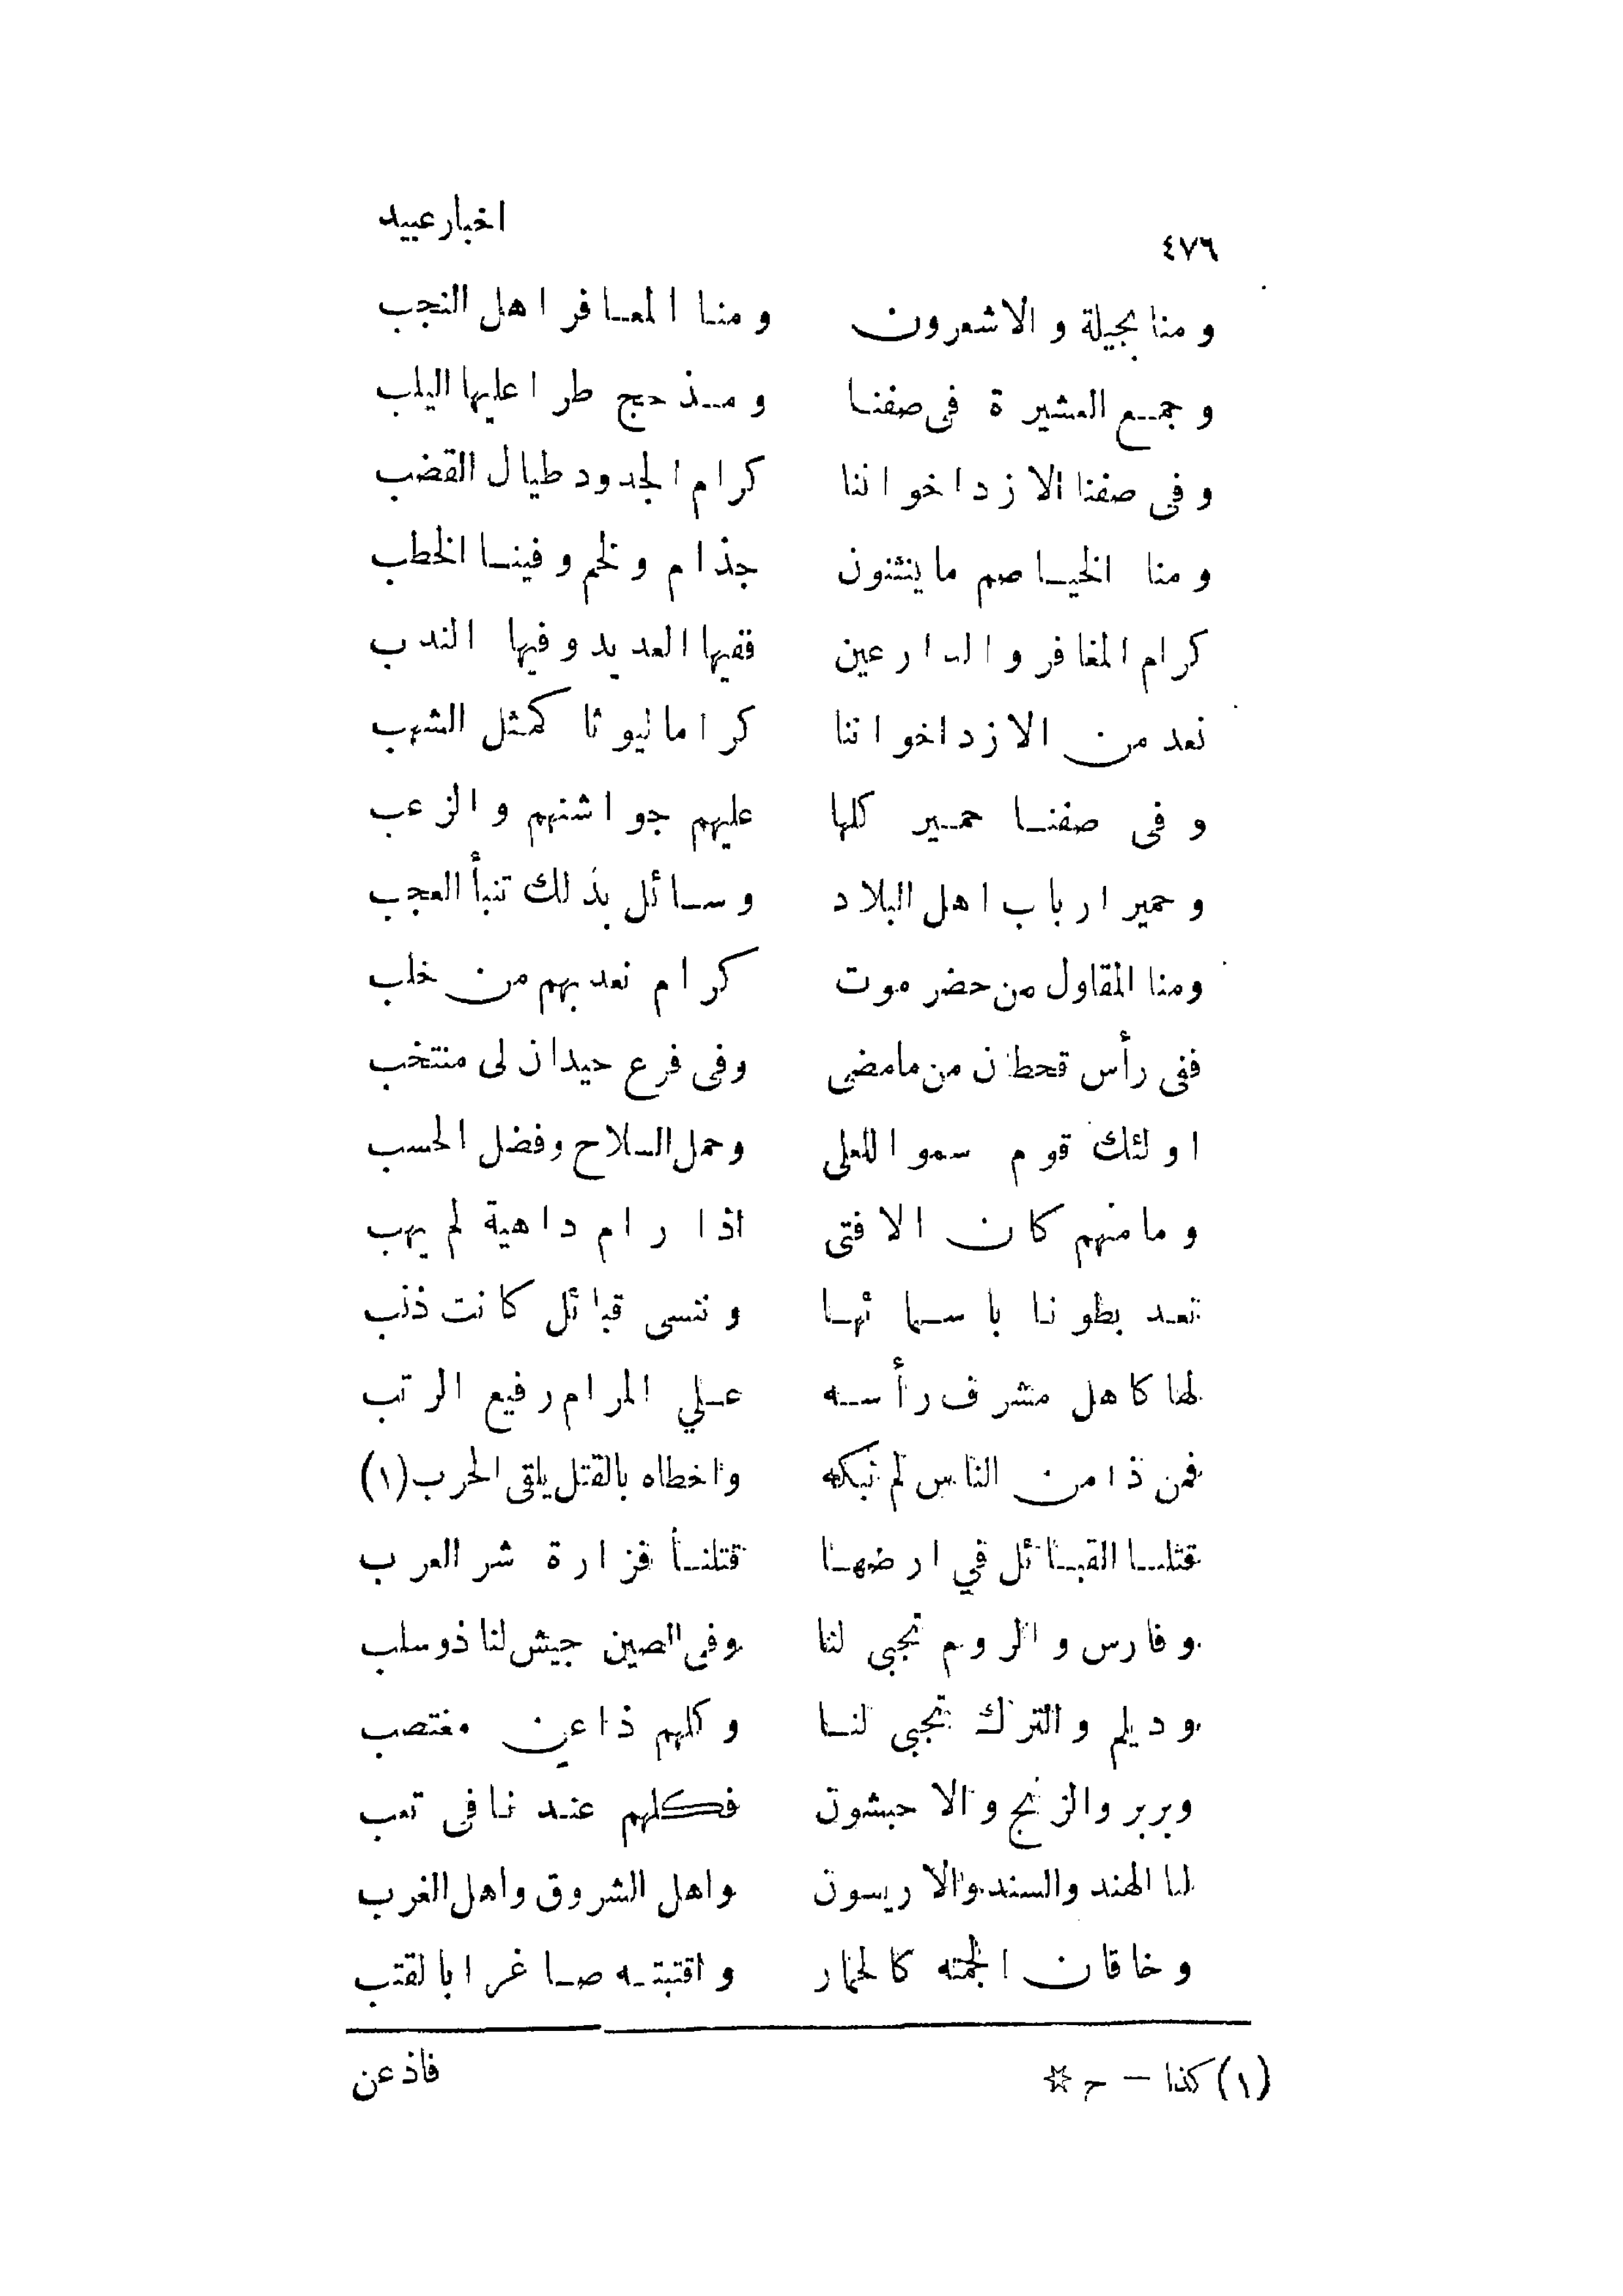 ٤٧٦ اخبار عبيد
ومنا بجيلة والاشعرون ومنا المعافر اهل النجب
وجمع العشيرة فى صفنا ومذحج طرا عليها اليلب
وفى صفنا الازد اخواننا كرام الجدود طيال القضب
ومنا الخياصم ما ينثنون جذام ولخم وفينا الخطب
كرام المغافر والدارعين ففيها العديد وفيها الندب
نعد من الازد اخواننا كراما ليوثا كمثل الشهب
وفى صفنا حمير كلها عليهم جواشنهم والزعب
وحمير ارباب اهل البلاد وسائل بذلك تنبأ العجب
ومنا المقاول من حضر موت كرام نعد بهم من خلب
ففى رأس قحطان من مامضى وفى فرع حيدان لى منتخب
اولئك قوم سموا للعلى وحمل السلاح وفضل الحسب
وما منهم كان الا فتى اذا رام داهية لم يهب
نعد بطونا باسمائها وننسى قبائل كانت ذنب
لها كاهل مشرف رأسه علي المرام رفيع الرتب
فمن ذا من الناس لم نبكه واخطاه بالقتل يلقى الحرب (١)
قتلنا القبائل في ارضها قتلنا فزارة شر العرب
وفارس والروم تجبى لنا وفى الصين جيش لنا ذوسلب
وديلم والترك تجبى لنا وكلهم ذاعن مغتصب
وبربر والزنج والاحبشون فكلهم عندنا فى تعب
لنا الهند والسند والاريسون واهل الشروق واهل الغرب
وخاقان الجمته كالحمار واقتبته صاغرا بالقتب
(١) كذا — ح ☆ فاذعن